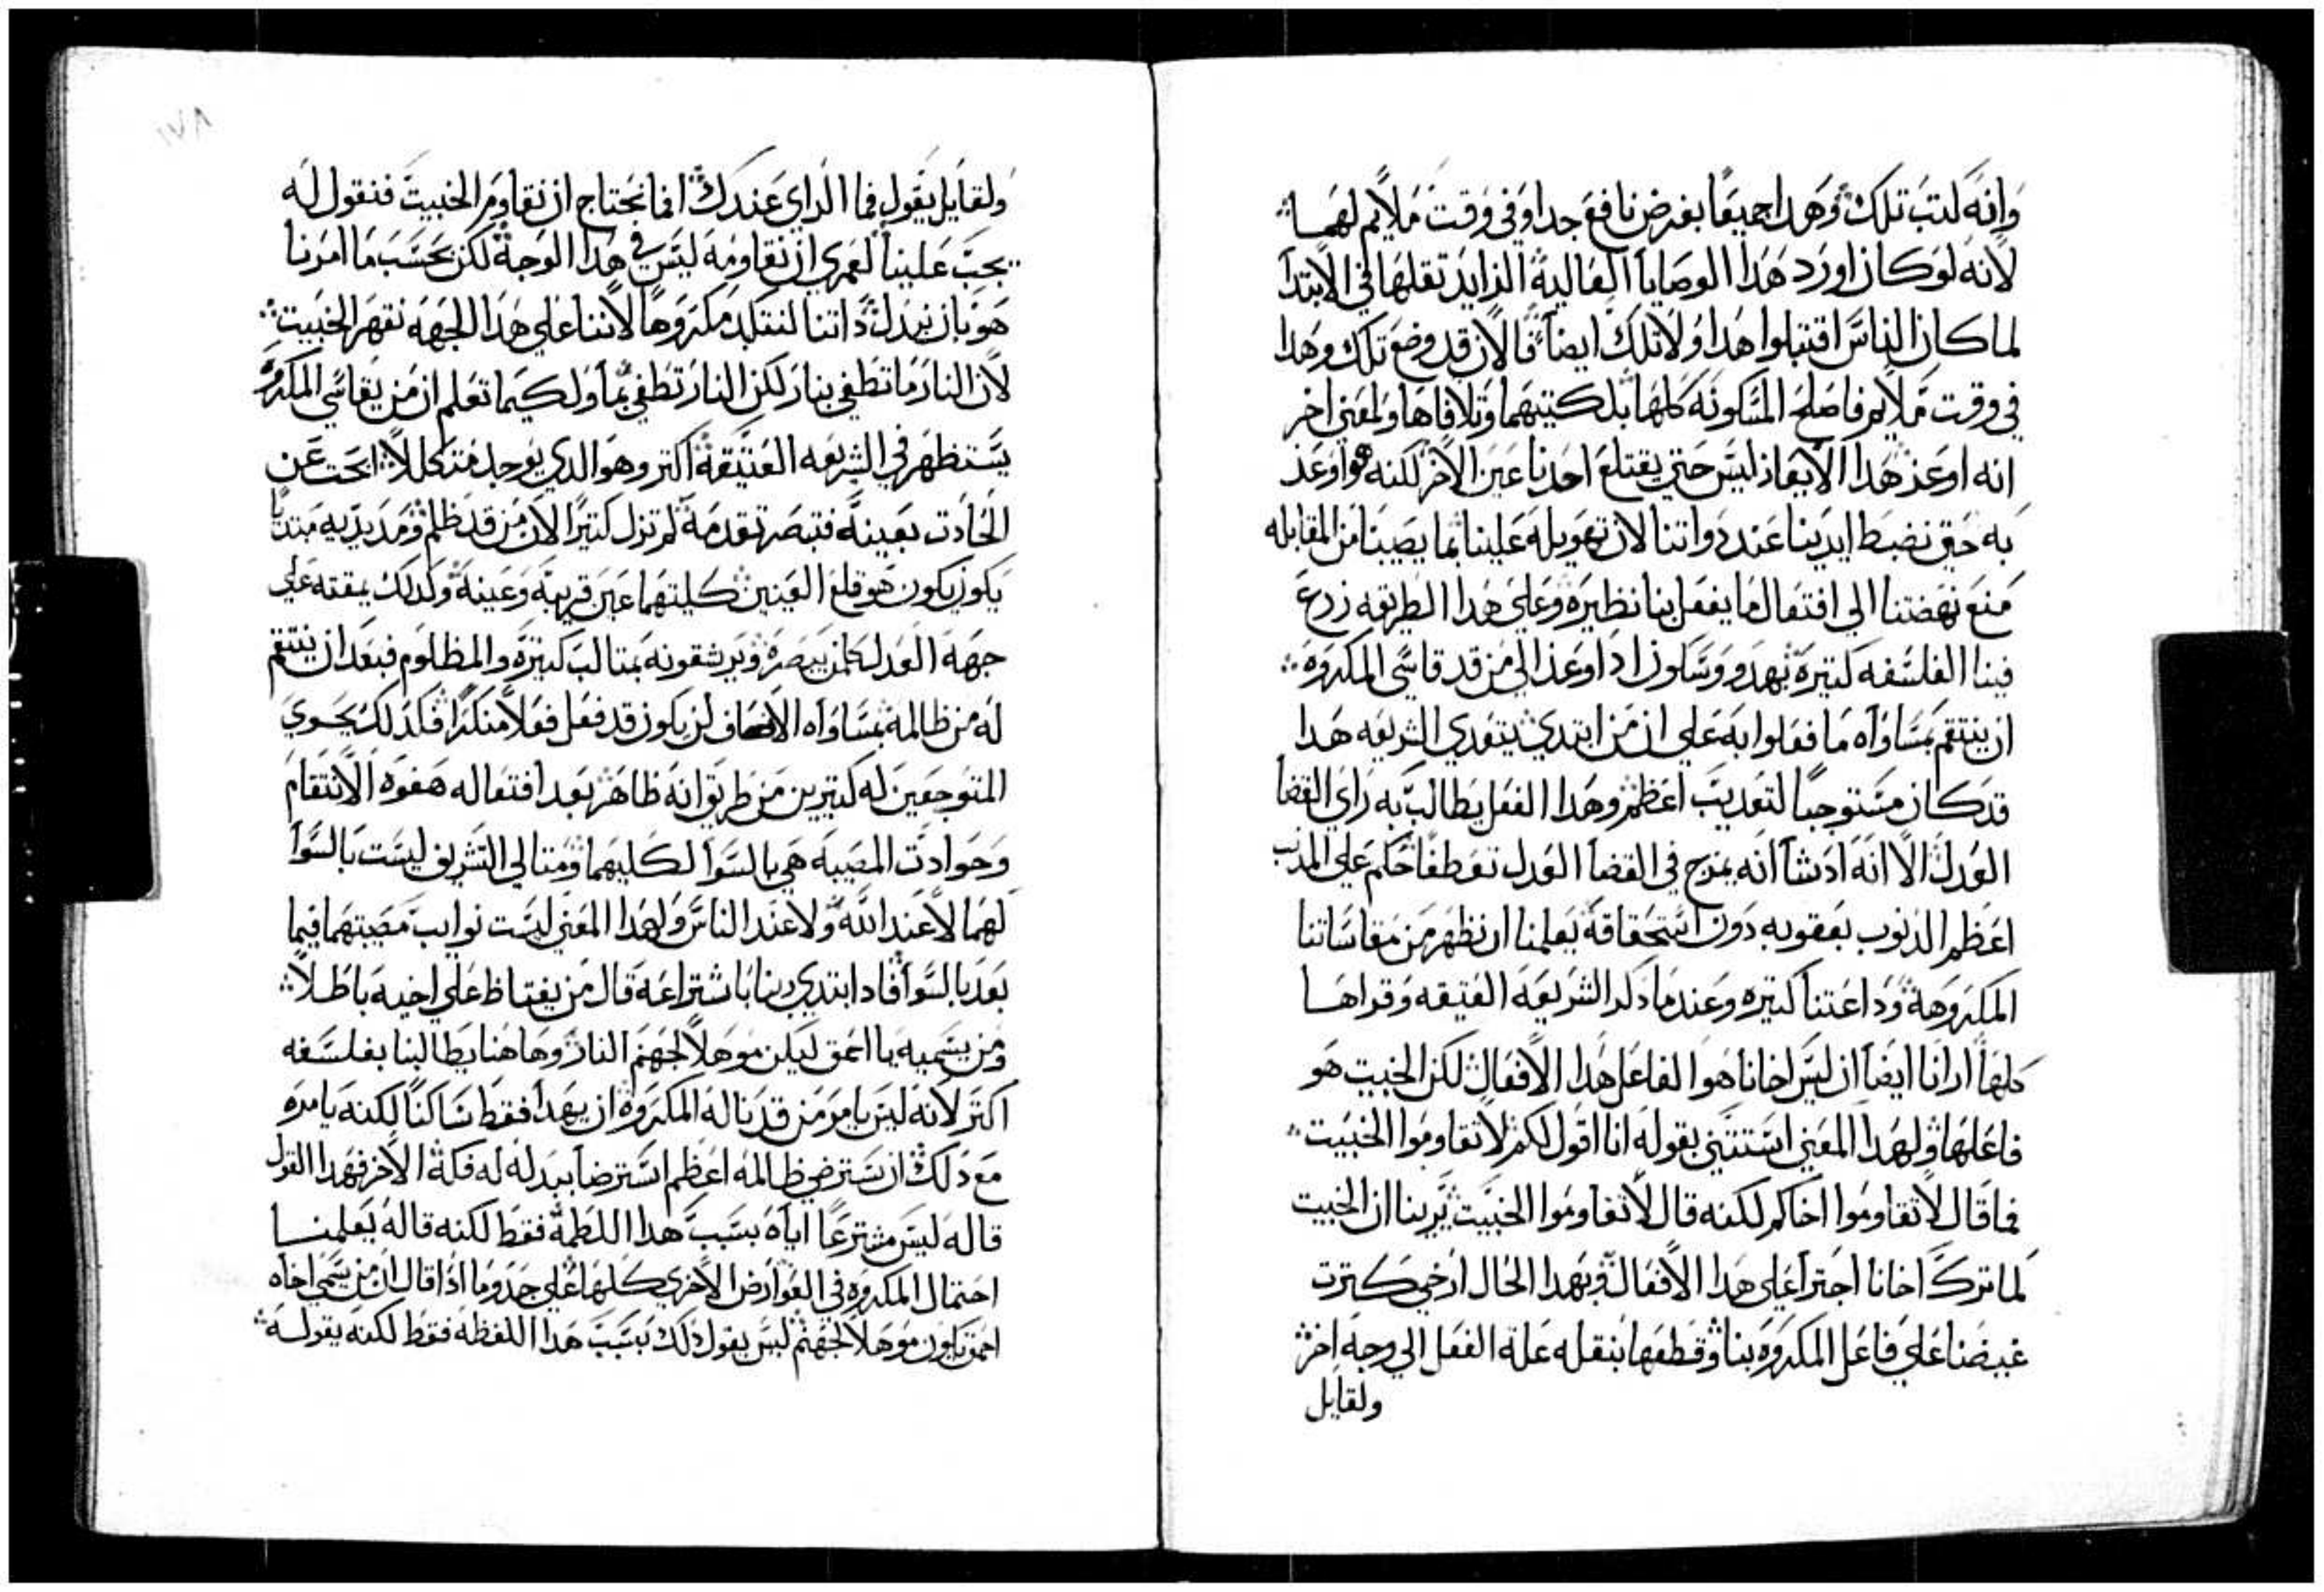 وانه لتب تلك وهدا جميعًا بغرض نافع جدا وفي وقت ملايم لهما
لانه لو كان اورد هدا الوصايا العالية الزايد تقلها في الابتدا
لما كان الناس اقتبلوا هدا ولا تلك ايضاً فالان قد وضع تلك وهدا
في وقت ملايم فاصلح المسكونه كلها بكتيهما وتلافاها ولمعني اخر
انه اوعز هدا الايعاز ليس حتي يقتلع احدنا عين الاخر لكنه هو اوعز
به حتي نضبط ايدينا عند دواتنا لان تهويله علينا بما يصيبنا من المقابله
منع نهضتنا الي افتعال ما يفعل بنا نظيره وعلي هدا الطريقه زرع
فينا الفلسفه كتيرة بهدو وسكون ادا اوعز الي من قد قاسي المكروه
ان ينتقم بمساواه ما فعلوا به علي ان من ابتدي يتعدي الشريعه هدا
قد كان مستوجبًا لتعديب اعظم وهدا الفعل يطالب به راي القضا
العدل الا انه اد شا انه يمزج في القضا العدل تعطفًا حكم علي المدنب
اعظم الدنوب بعقوبه دون استحقاقه يعلمنا ان نظهر من مقاساتنا
المكروهة وداعتنا كتيره وعندما دكر الشريعه العتيقه وقراها
كلها ارانا ايضاً ان ليس اخانا هو الفاعل هدا الافعال لكن الخبيت هو
فاعلها ولهدا المعني استتني بقوله انا اقول لكم لا تقاوموا الخبيت
فما قال لا تقاوموا اخاكم لكنه قال لا تقاوموا الخبيت يرينا ان الخبيت
لما تركَ اخانا اجترا علي هدا الافعال وبهدا الحال ارخي كترت
غيضنا علي فاعل المكروه بنا وقطعها بنقله علة الفعل الي وجه اخر
ولقايل
ولقايل يقول فما الراي عندك افما نحتاج ان نقاوم الخبيت فنقول له
يجب علينا لعمري ان نقاومه ليس في هدا الوجه لكن بحسب ما امرنا
هو بان نبدل داتنا لنتكلد مكروهًا لاننا علي هدا الجهه نقهر الخبيت
لان النار ما تطفي بنار لكن النار تطفي بما ولكيما تعلم ان من يقاسي المكروه
يستظهر في الشريعه العتيقة اكتر وهو الدي يوجد متكللاً ابحت عن
الحادت بعينه فتبصر تقدمه لم تزل كتيرًا لان من قد ظلم ومد يديه مبتديًا
يكون يكون هو قلع العينين كليتهما عين قريبه وعينه ولدلك يمقته علي
جهة العدل كلمن يبصره ويرشقونه بمتالب كتيرة والمظلوم فبعد ان ينتقم
له من ظالمه بمساواه الانصاف لن يكون قد فعل فعلاً منكرًا فكدلك يحوي
المتوجعين له كتيرين من طريق انه ظاهر بعد افتعاله هفوه الانتقام
وحوادت المصيبه هي بالسوا لكليهما ومتالي التشريف ليست بالسوا
لهما لا عند الله ولا عند الناس ولهدا المعني ليست نوايب مصيبتهما فيما
بعد بالسوا فاد ابتدي ربنا باشتراعه قال من يغتاظ علي اخيه باطلاً
ومن يسميه يا احمق ليكن موهلاً لجهنم النار وها هنا يطالبنا بفلسفه
اكتر لانه ليس يامر من قد ناله المكروه ان يهدا فقط ساكنًا لكنه يامره
مع دلك ان يسترضي ظالمه اعظم استرضا ببدله له فكة الاخر فهدا القول
قاله ليس مشترعًا اياه بسبب هدا اللطمة فقط لكنه قاله يعلمنا
احتمال المكروه في العوارض الاخري كلها علي حد وما ادا قال ان من سمي اخاه
احمق يكون موهلاً لجهنم ليس يقول دلك بسبب هدا اللفظة فقط لكنه يقوله